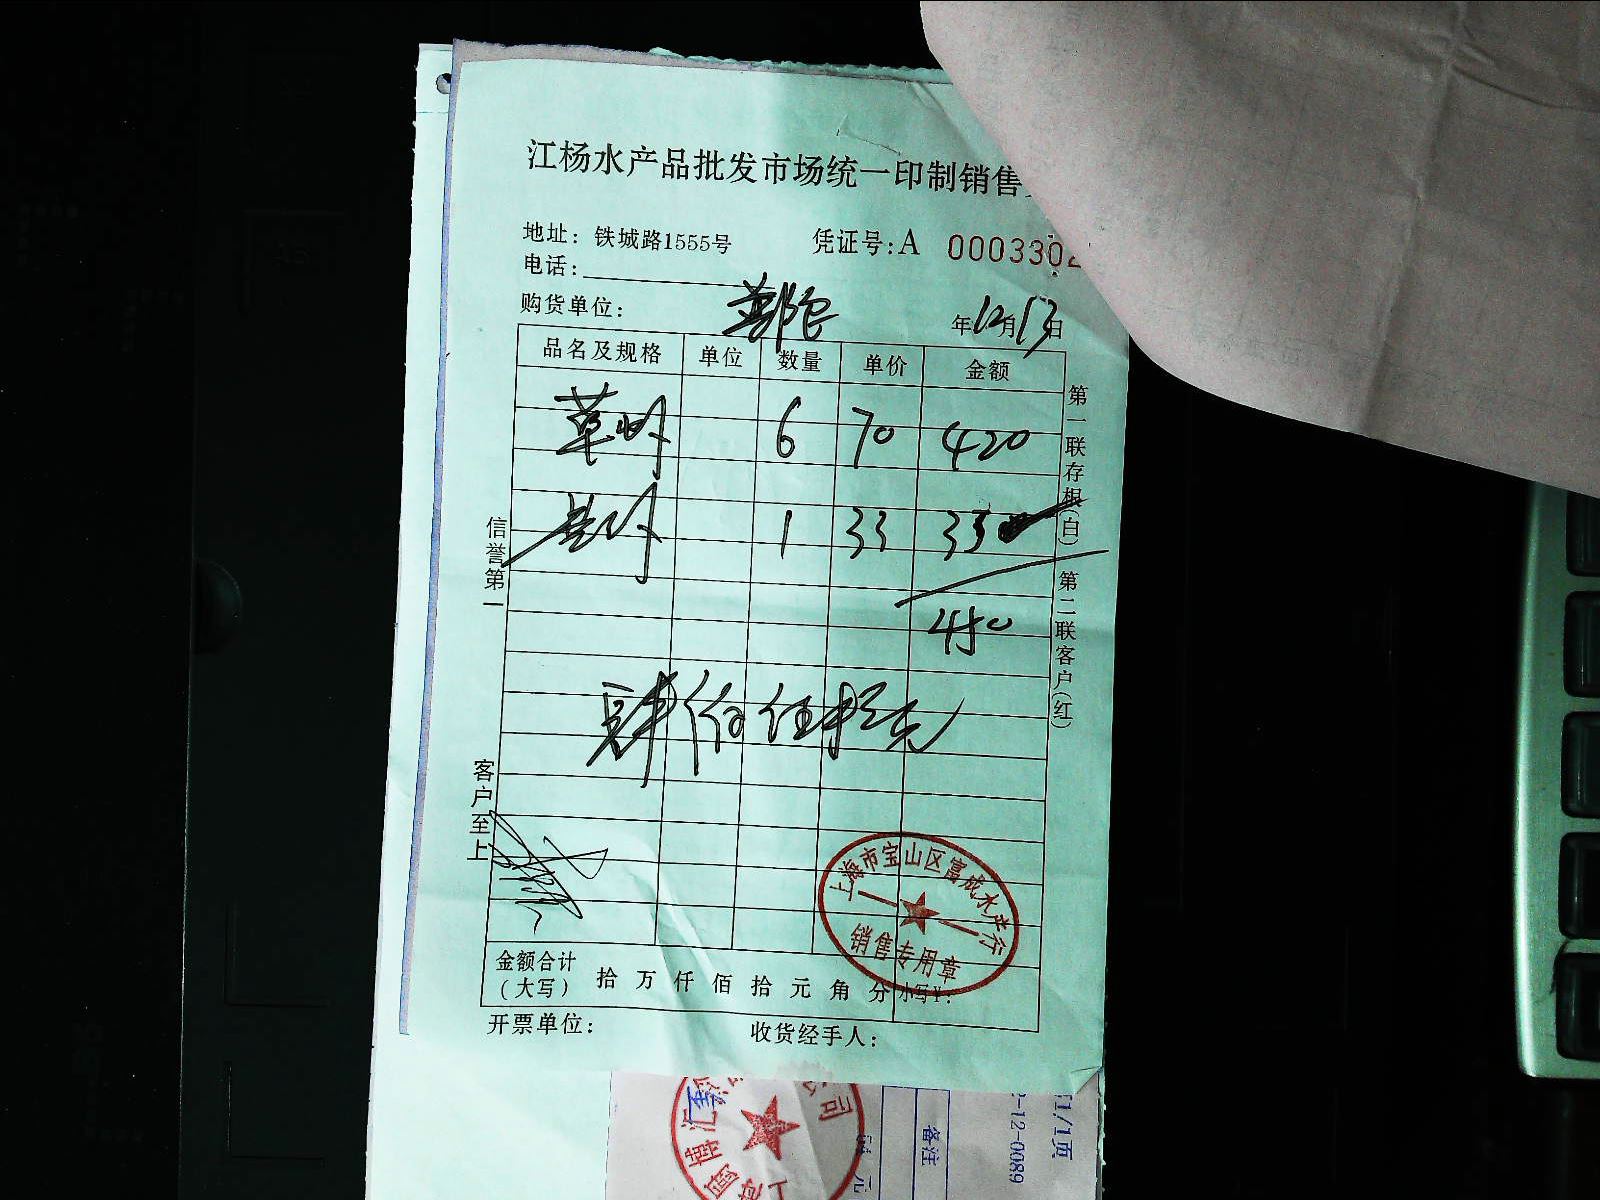 江杨水产品批发市场统一印制销售
地址：铁城路1555号 凭证号:A 0003302
电话:
购货单位: 年12月13日
品名及规格 单位 数量 单价 金额
草虾 6 70 420
1 33 33
450
肆佰伍拾元
信誉第一
客户至上
第一联存根(白) 第二联客户(红)
上海市宝山区富成水产行
销售专用章
金额合计(大写) 拾 万 仟 佰 拾 元 角 分 小写￥:
开票单位: 收货经手人:
备注
元
1/1页
-12-0089